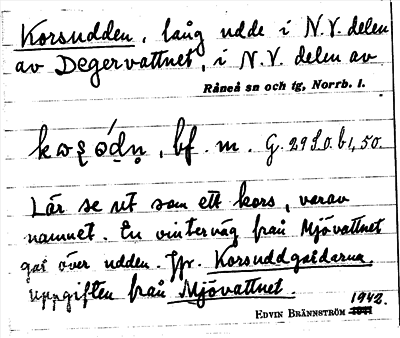 Korsudden, lång udde i N.V. delen
av Degervattnet, i N.V. delen av
Råneå sn och tg, Norrb. l.
bf. m. G. 29 S.O. b 1, 50.
Lär se ut som ett kors, varav
namnet. En vinterväg från Mjövattnet
går över udden. Jfr. Korsuddgårdarna.
Uppgiften från Mjövattnet.
1942.
EDVIN BRÄNNSTRÖM 1941